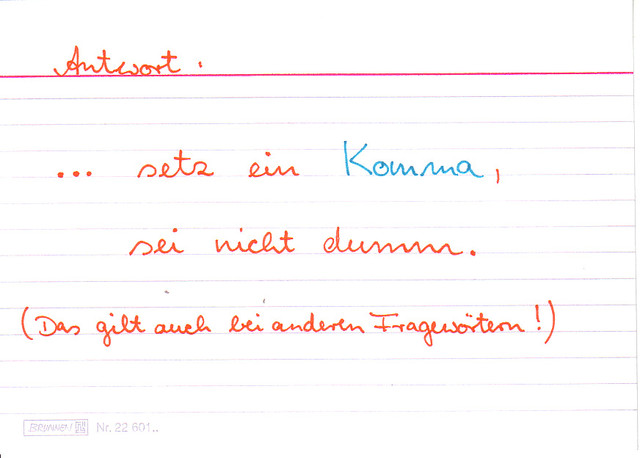 Antwort.
... setz ein Komma,
sei nicht dumm.
(Das gilt auch bei anderen Fragewörtern!)
BRUNNEN Nr. 22 601..